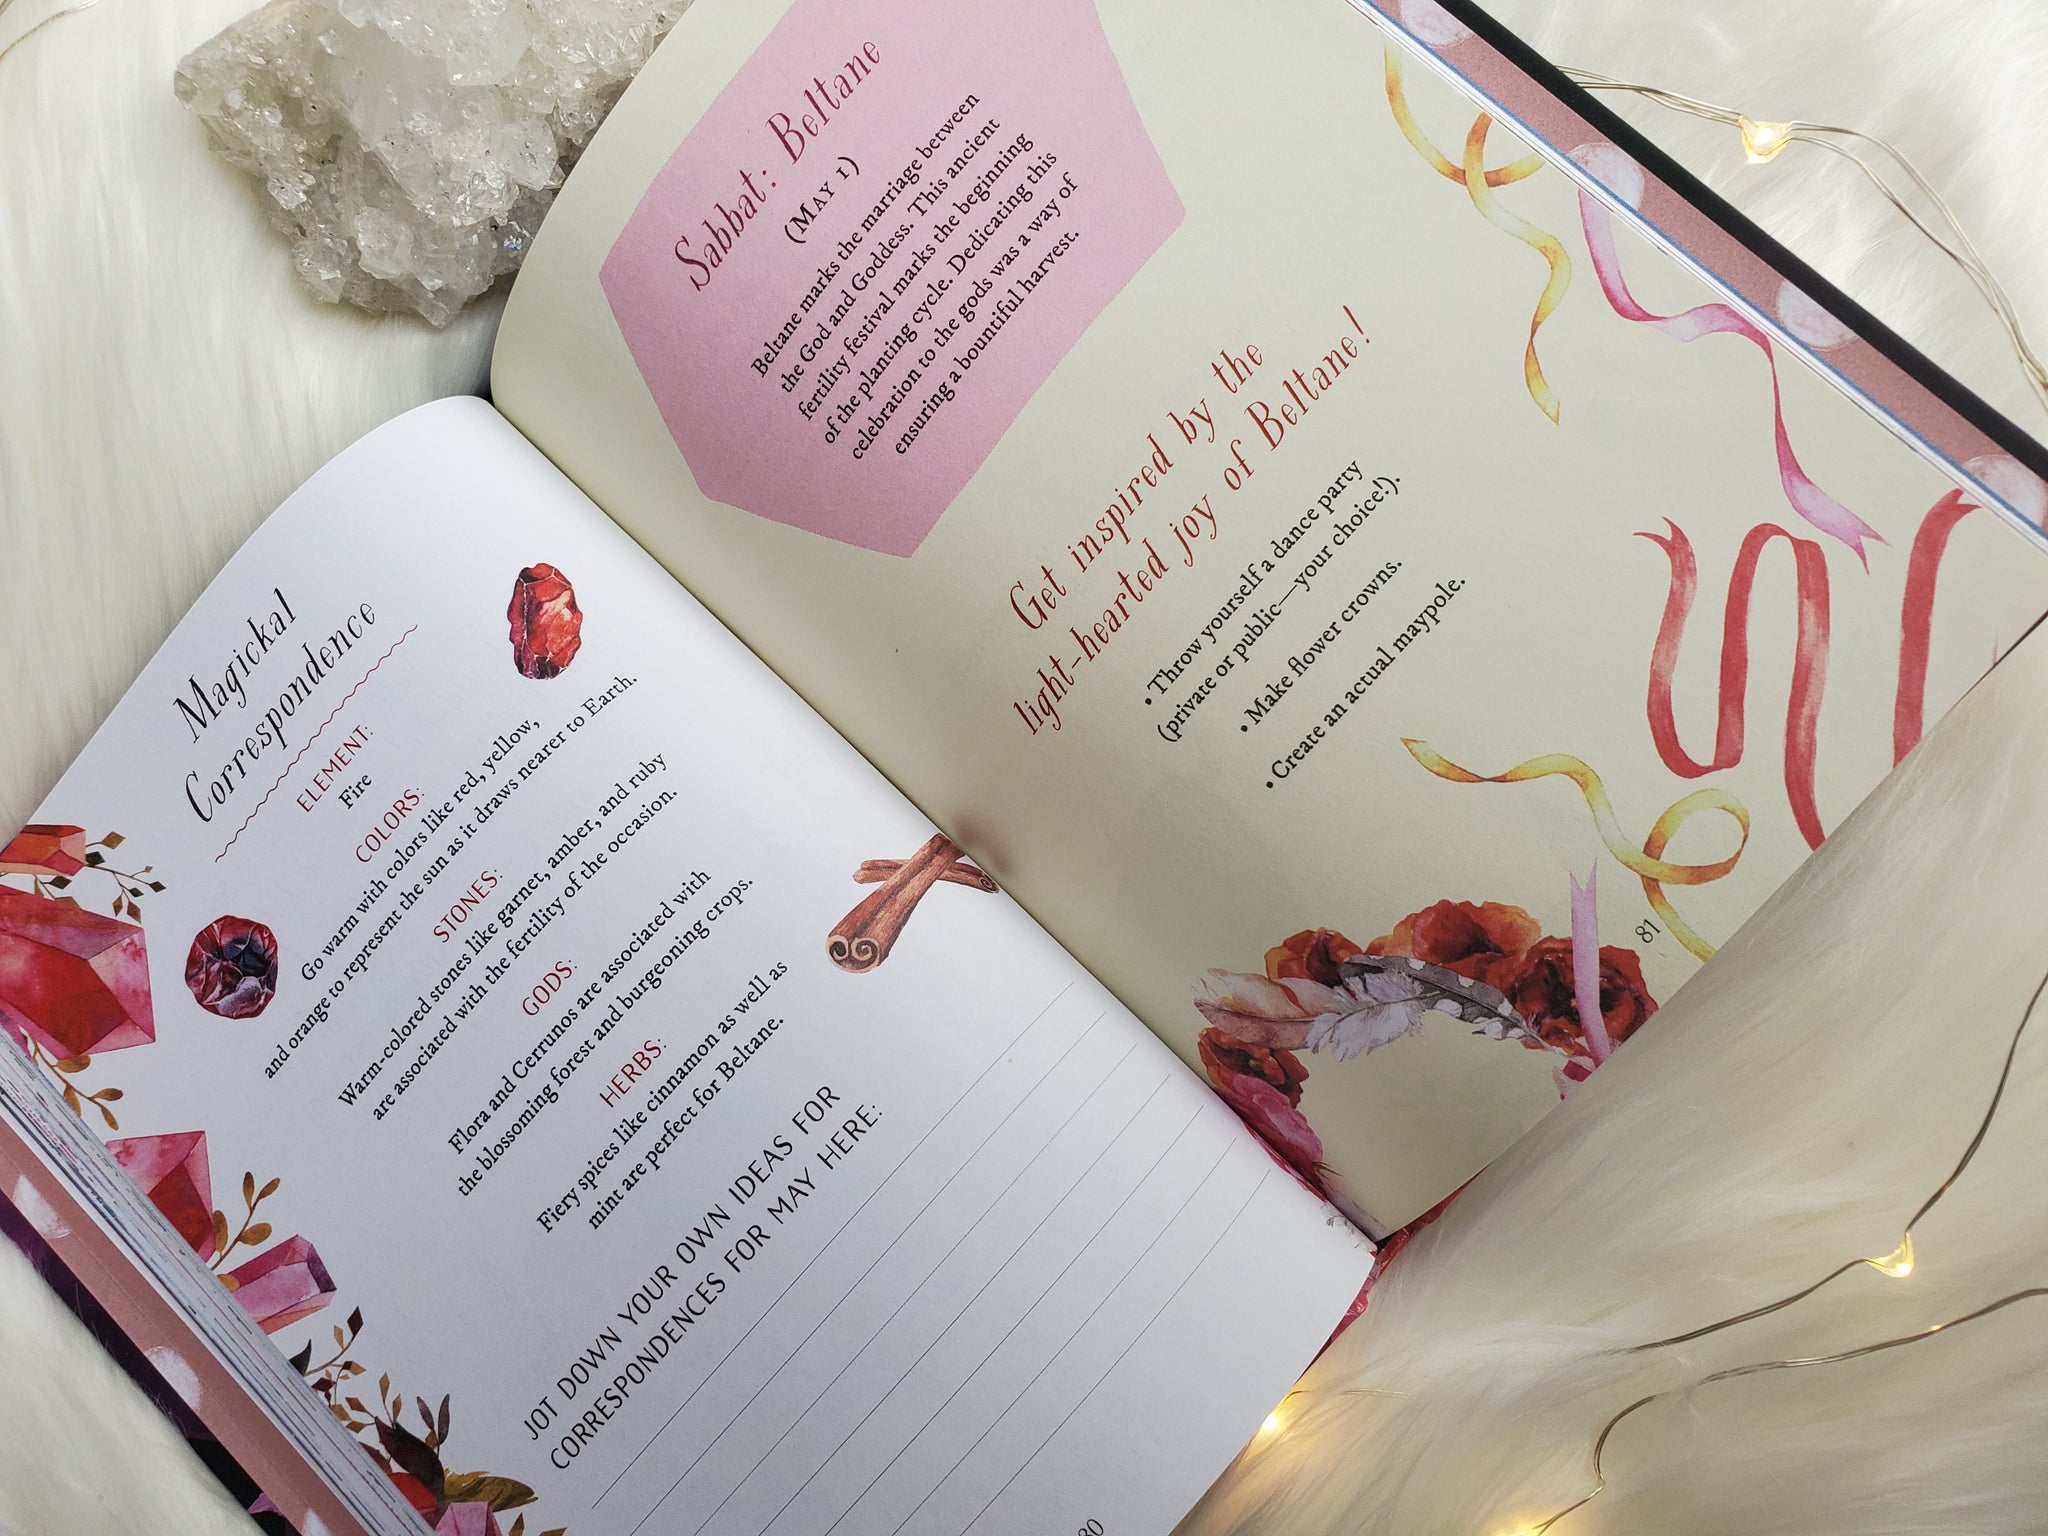 Magickal
Correspondence
ELEMENT:
Fire
COLORS:
Go warm with colors like red, yellow,
and orange to represent the sun as it draws nearer to Earth.
STONES:
Warm-colored stones like garnet, amber, and ruby
are associated with the fertility of the occasion.
GODS:
Flora and Cerrunos are associated with
the blossoming forest and burgeoning crops.
HERBS:
Fiery spices like cinnamon as well as
mint are perfect for Beltane.
JOT DOWN YOUR OWN IDEAS FOR
CORRESPONDENCES FOR MAY HERE:
80
Sabbat: Beltane
(MAY 1)
Beltane marks the marriage between
the God and Goddess. This ancient
fertility festival marks the beginning
of the planting cycle. Dedicating this
celebration to the gods was a way of
ensuring a bountiful harvest.
Get inspired by the
light-hearted joy of Beltane!
• Throw yourself a dance party
(private or public—your choice!).
• Make flower crowns.
• Create an actual maypole.
81